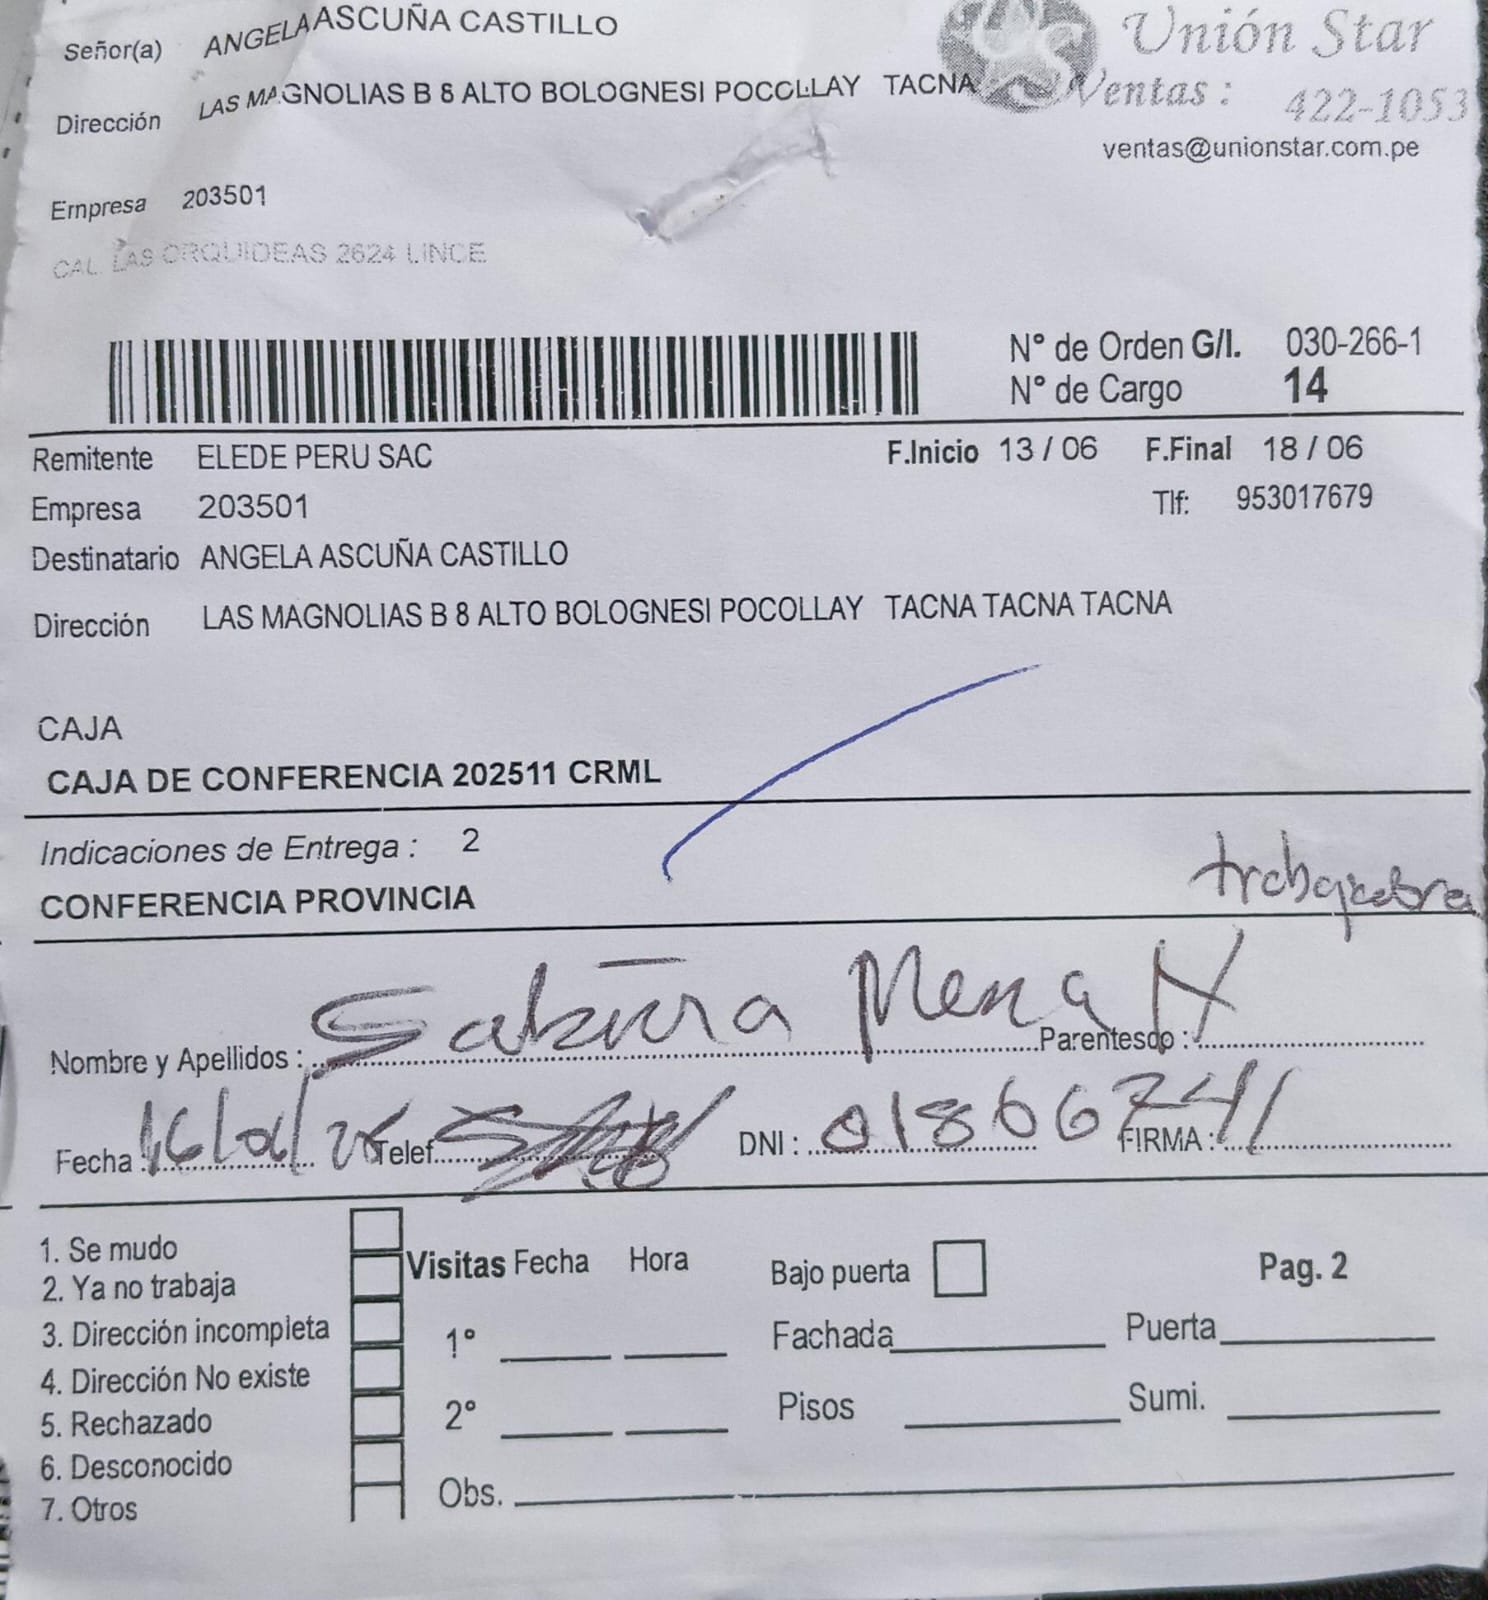 Señor(a) ANGELA ASCUÑA CASTILLO
Unión Star
Dirección LAS MAGNOLIAS B 8 ALTO BOLOGNESI POCOLLAY TACNA
Ventas : 422-1053
ventas@unionstar.com.pe
Empresa 203501
CAL. LAS ORQUIDEAS 2624 LINCE
N° de Orden G/I. 030-266-1
N° de Cargo 14
Remitente ELEDE PERU SAC F.Inicio 13 / 06 F.Final 18 / 06
Empresa 203501 Tlf: 953017679
Destinatario ANGELA ASCUÑA CASTILLO
Dirección LAS MAGNOLIAS B 8 ALTO BOLOGNESI POCOLLAY TACNA TACNA TACNA
CAJA
CAJA DE CONFERENCIA 202511 CRML
Indicaciones de Entrega : 2
CONFERENCIA PROVINCIA
Nombre y Apellidos : Mena Parentesco :
Fecha : Telef. DNI : FIRMA :
1. Se mudo
2. Ya no trabaja
3. Dirección incompleta
4. Dirección No existe
5. Rechazado
6. Desconocido
7. Otros
Visitas Fecha Hora
1°
2°
Obs.
Bajo puerta Pag. 2
Fachada Puerta
Pisos Sumi.